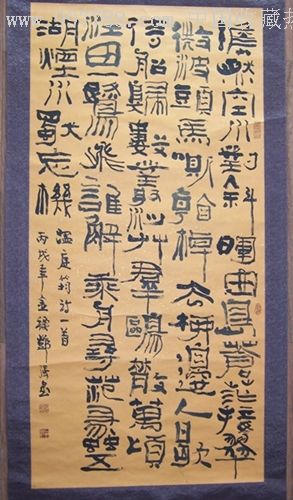 澹然空水對斜暉曲島蒼茫接翠
微波頭馬嘶看棹去柳邊人歇
待船歸數叢沙艸群鷗散萬頃
江田一鷺飛誰解乘舟尋范蠡五
湖煙水獨忘機
溫庭筠詩一首
丙戌年
www.